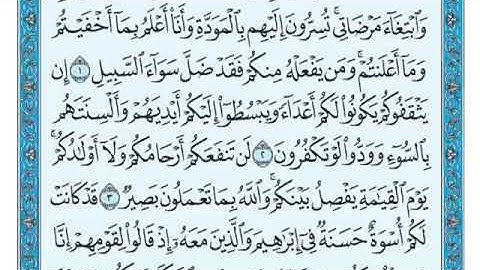 وَٱبْتِغَآءَ مَرْضَاتِى ۚ تُسِرُّونَ إِلَيْهِم بِٱلْمَوَدَّةِ وَأَنَا۠ أَعْلَمُ بِمَآ أَخْفَيْتُمْ
وَمَآ أَعْلَنتُمْ ۚ وَمَن يَفْعَلْهُ مِنكُمْ فَقَدْ ضَلَّ سَوَآءَ ٱلسَّبِيلِ ١ إِن
يَثْقَفُوكُمْ يَكُونُوا۟ لَكُمْ أَعْدَآءً وَيَبْسُطُوٓا۟ إِلَيْكُمْ أَيْدِيَهُمْ وَأَلْسِنَتَهُم
بِٱلسُّوٓءِ وَوَدُّوا۟ لَوْ تَكْفُرُونَ ٢ لَن تَنفَعَكُمْ أَرْحَامُكُمْ وَلَآ أَوْلَـٰدُكُمْ ۚ
يَوْمَ ٱلْقِيَـٰمَةِ يَفْصِلُ بَيْنَكُمْ ۚ وَٱللَّهُ بِمَا تَعْمَلُونَ بَصِيرٌ ٣ قَدْ كَانَتْ
لَكُمْ أُسْوَةٌ حَسَنَةٌ فِىٓ إِبْرَٰهِيمَ وَٱلَّذِينَ مَعَهُۥٓ إِذْ قَالُوا۟ لِقَوْمِهِمْ إِنَّا